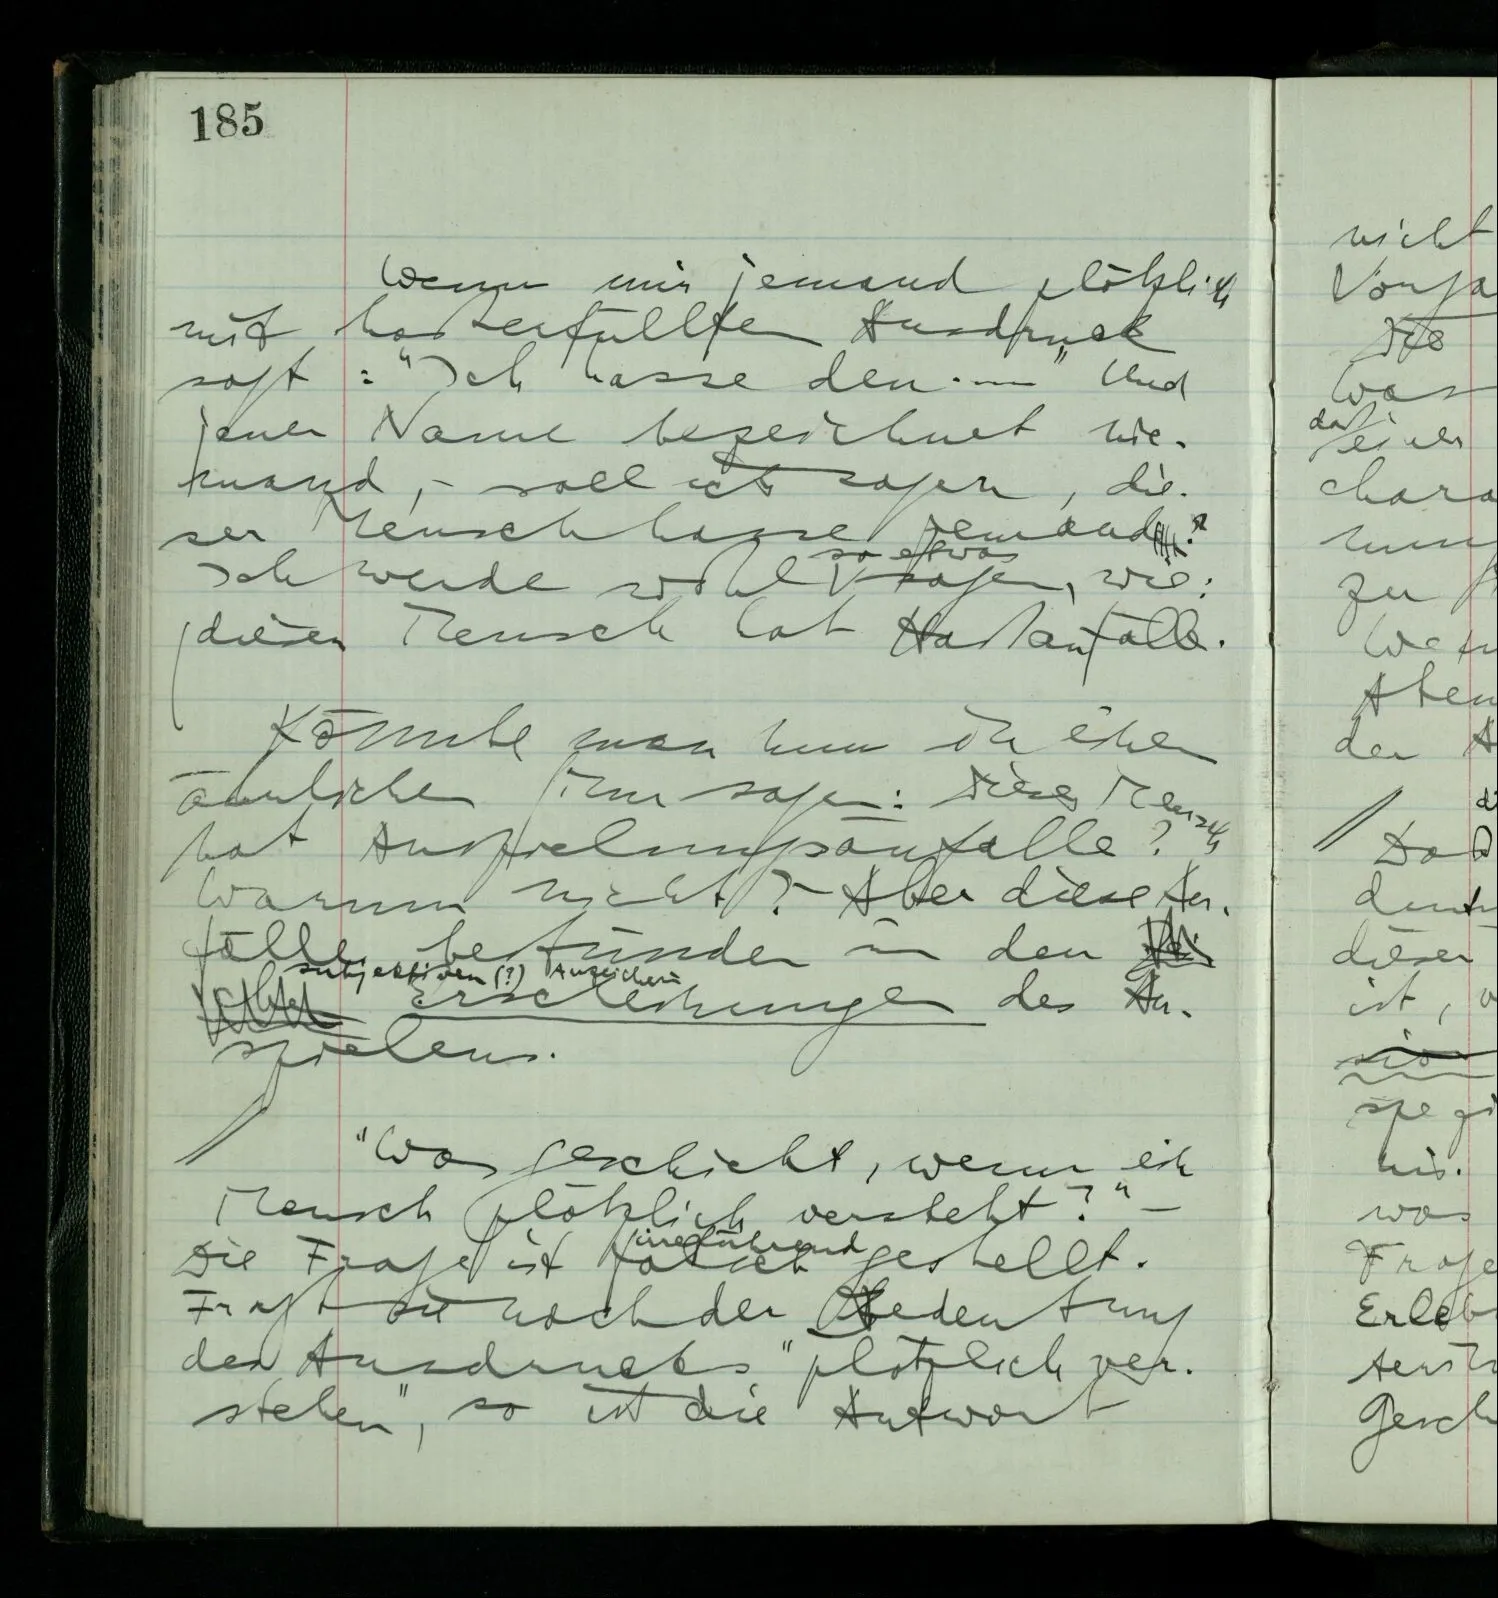 185
Wenn mir jemand plötzlich
mit hasserfülltem Ausdruck
sagt: "Ich hasse den ....." Und
jener Name bezeichnet nie-
mand, – soll ich sagen, die-
ser Mensch hasse jemand?
so etwas
Ich werde wohl sagen, wie:
dieser Mensch hat Hassanfälle.
Könnte man nun in einem
änlichen Sinn sagen: dieser Mensch
hat Anspielungsanfälle?
Warum nicht? – Aber diese An-
fälle bestünden in den
subjektiven (?) Anzeichen
Erscheinungen des An-
spielens.
"Was geschieht, wenn ein
Mensch plötzlich versteht?" –
irreführend
Die Frage ist falsch gestellt.
Fragt sie nach der Bedeutung
des Ausdrucks "plötzlich ver-
stehen", so ist die Antwort
nicht
Die
was
daß
einer
zu
der
dieser
ist,
was